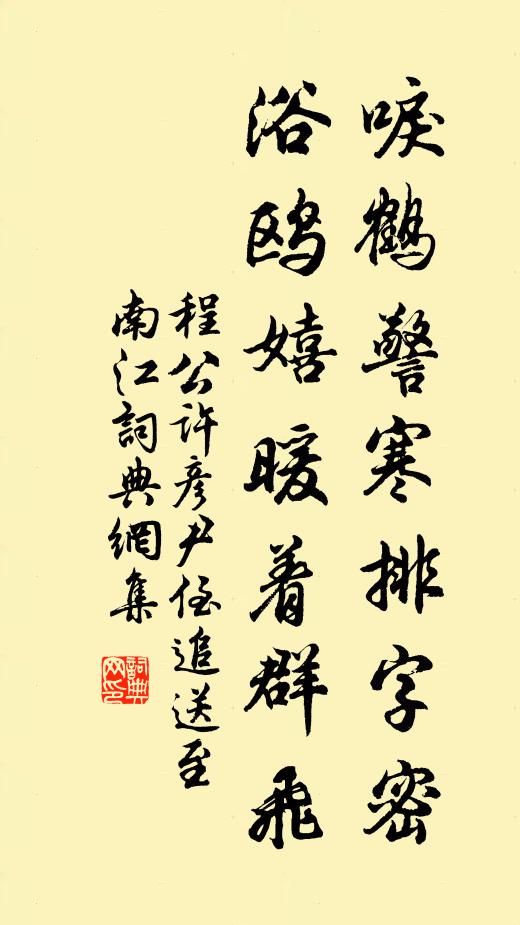 唳鶴警寒排字密
浴鸥嬉暖着群飛
程公許彦尹侄追送至
南江詞典網集
詞典網印